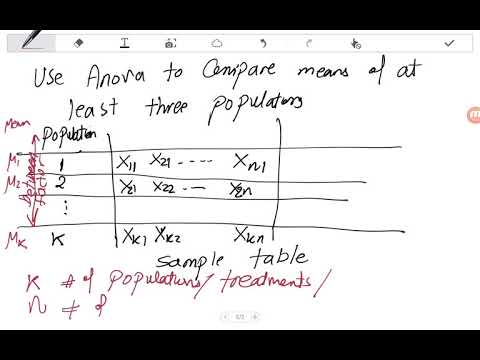 Use Anova to Compare means of at
least three populations
Mean Population
μ1 1 X11 X21 ---- Xn1
μ2 2 X21 X22 --- X2n
Between factor
⋮
μK K XK1 XK2 XKn
sample table
K # of populations/ treatments/
n # of